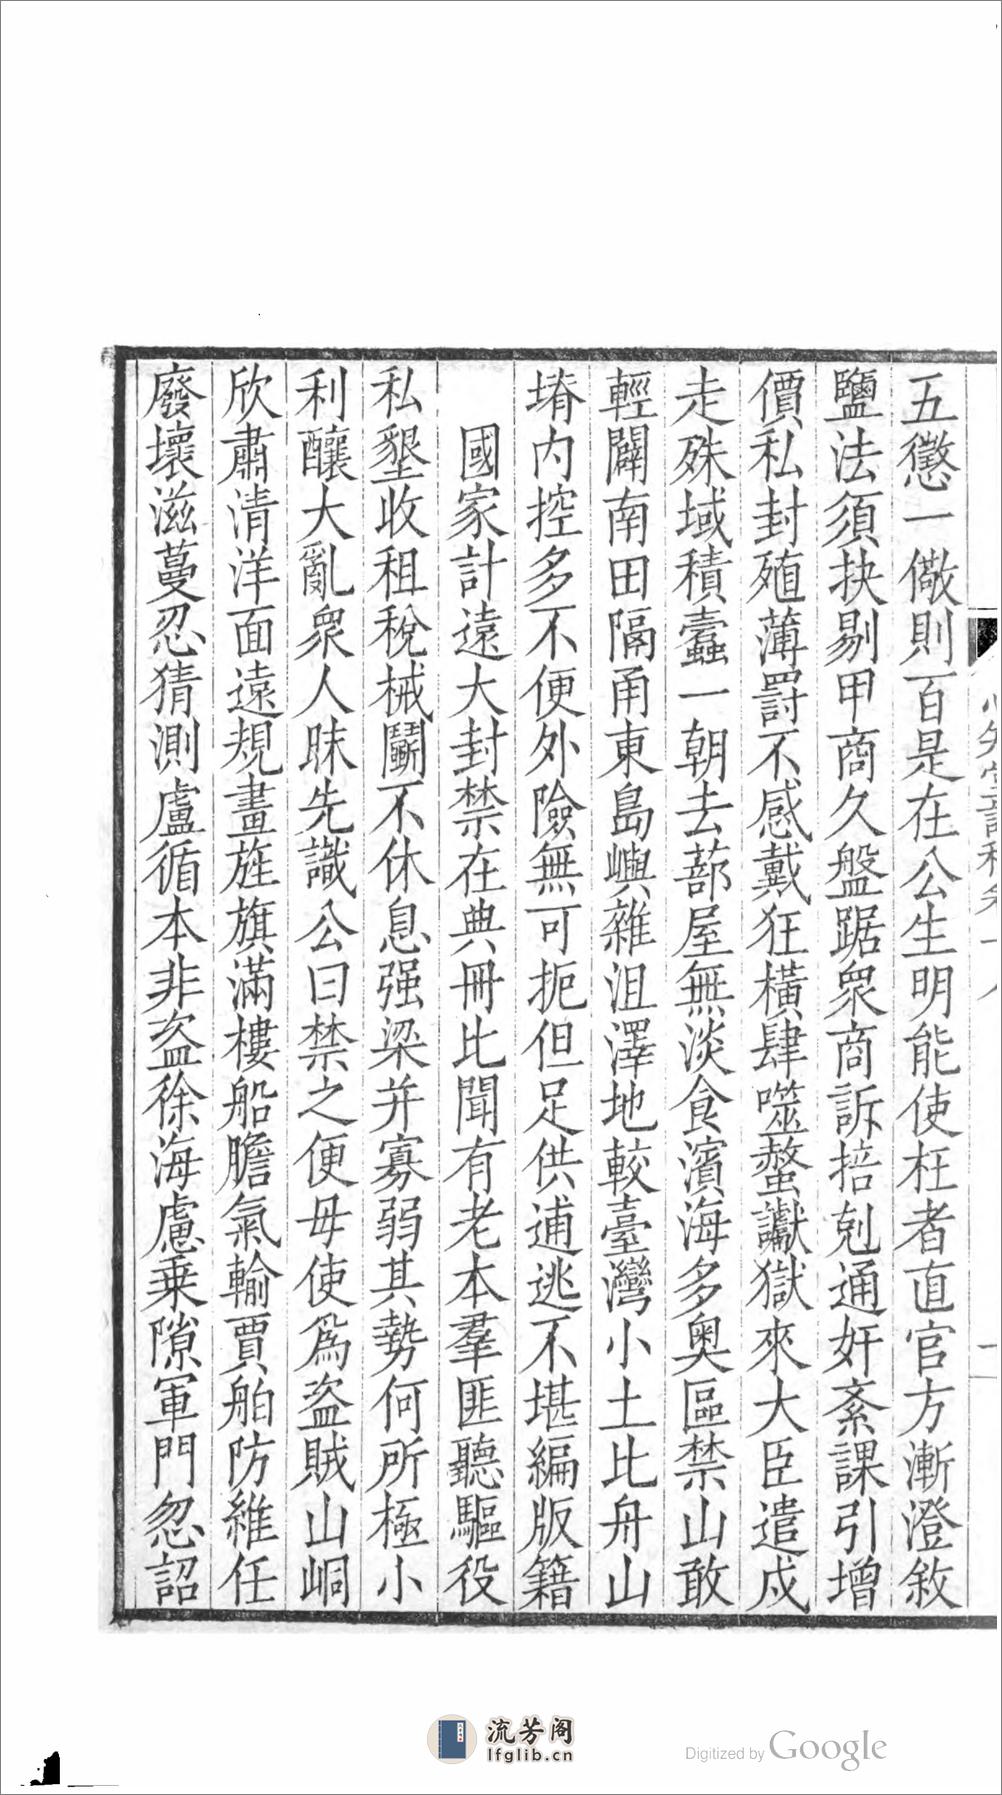 五懲一儆則百是在公生明能使枉者直官方漸澄敘
鹽法須抉剔甲商久盤踞衆商訴掊剋通奸紊課引增
價私封殖薄罸不感戴狂橫肆噬螫讞獄來大臣遣戍
走殊域積蠹一朝去蔀屋無淡食濱海多奥區禁山敢
輕闢南田隔甬東島嶼雜沮澤地較臺灣小土比舟山
堾內控多不便外險無可扼但足供逋逃不堪編版籍
國家計遠大封禁在典冊比聞有老本羣匪聽驅役
私墾收租稅械鬭不休息强梁并寡弱其勢何所極小
利釀大亂衆人昧先識公曰禁之便毋使爲盜賊山峒
欣肅清洋面遠規畫旌旗滿樓船膽氣輸賈舶防維任
廢壞滋蔓忍猜測盧循本非盜徐海慮乗隙軍門忽詔
流芳阁
lfglib.cn
Digitized by Google